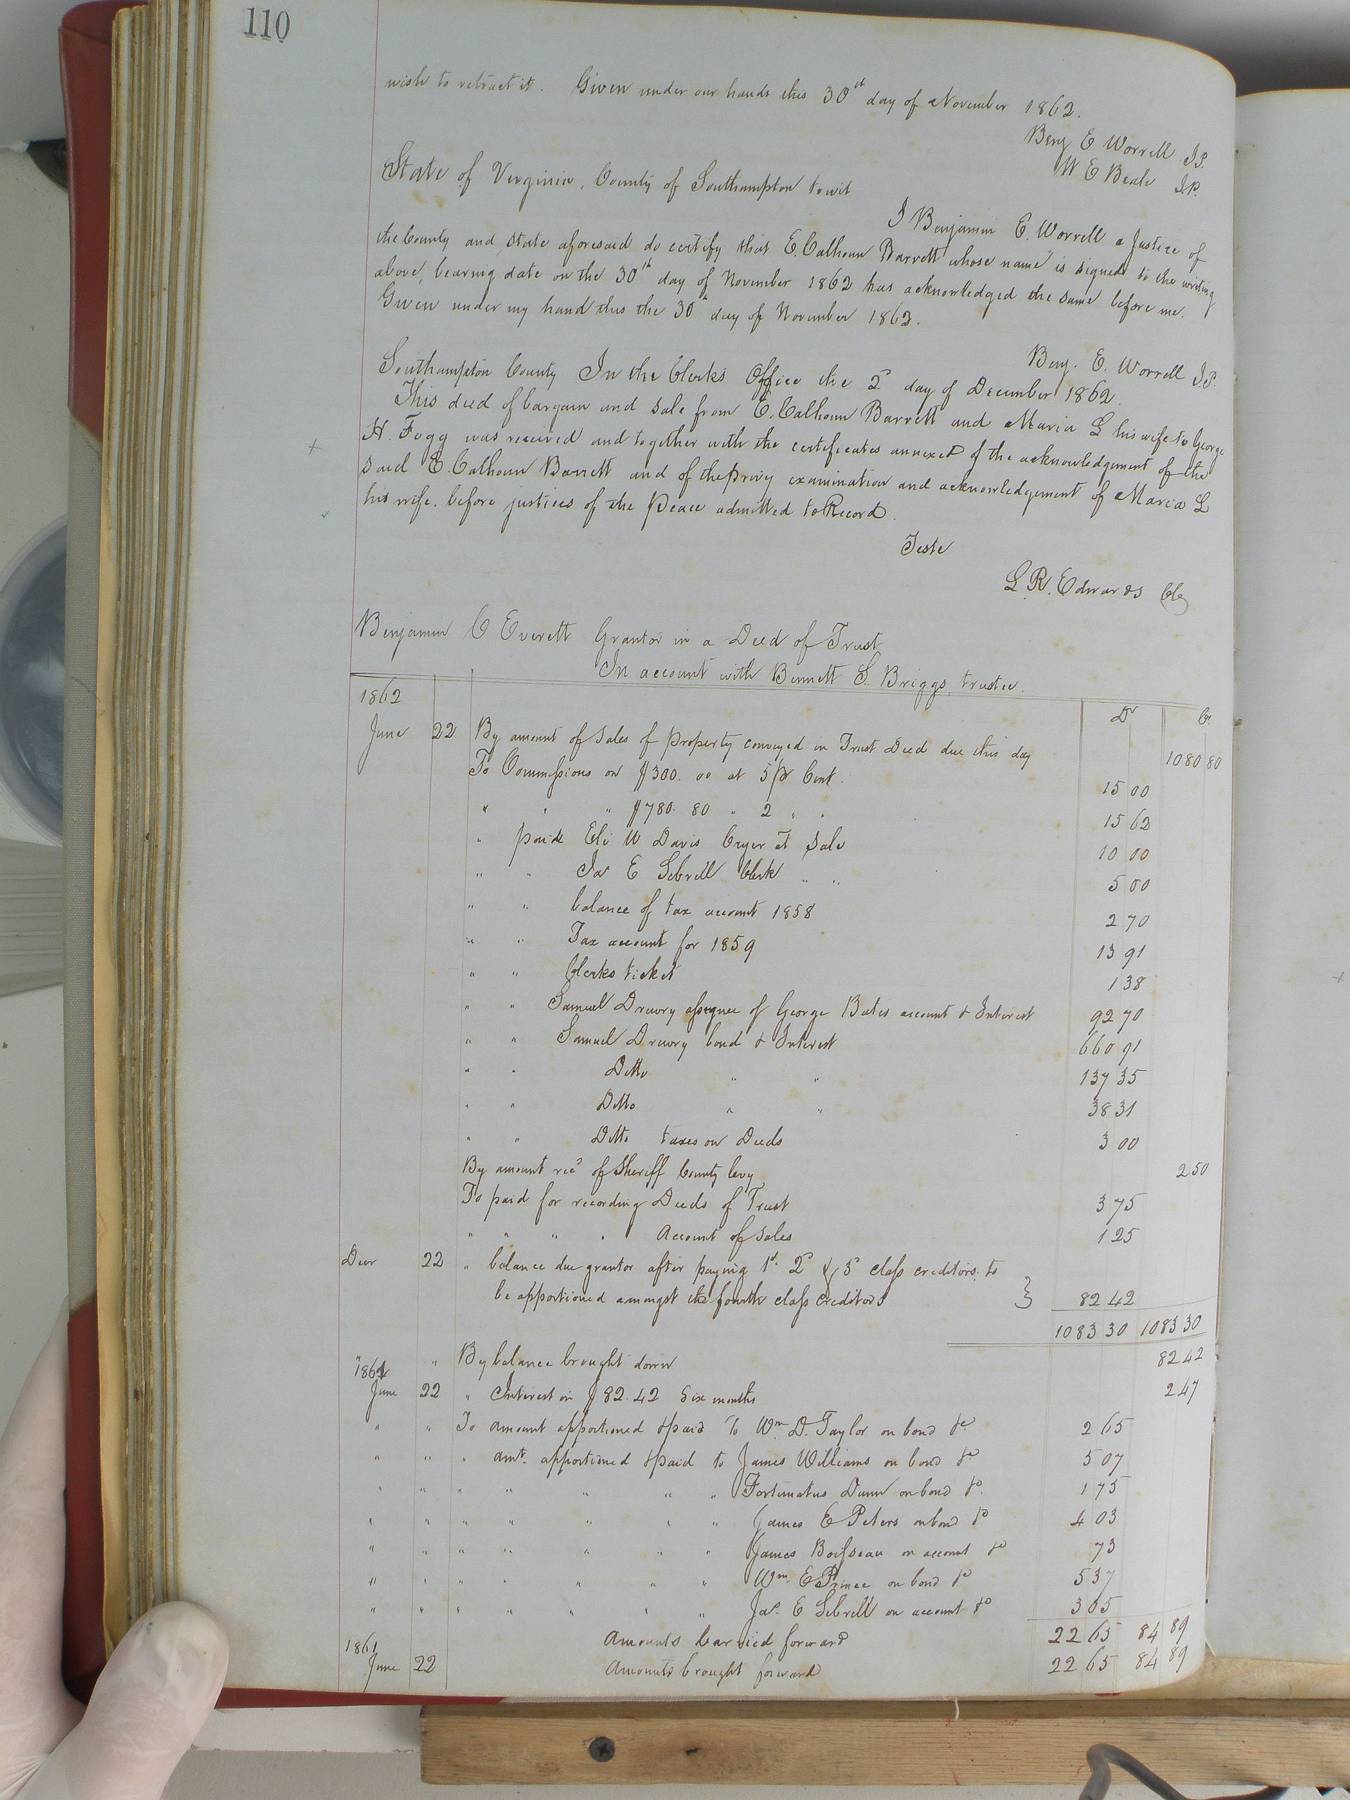 110
wish to retract it. Given under our hands this 30th day of November 1862.
Benj E Worrell J.P.
W E Beale J.P.
State of Virginia, County of Southampton towit
I Benjamin E. Worrell a Justice of
the County and State aforesaid do certify that E. Calhoun Barrett whose name is signed to the writing
above, bearing date on the 30th day of November 1862 has acknowledged the same before me.
Given under my hand this the 30th day of November 1862.
Benj. E. Worrell J.P.
Southampton County In the Clerks Office the 2d day of December 1862.
This deed of bargain and sale from E. Calhoun Barrett and Maria L his wife to George
H. Fogg was received and together with the certificates annexed of the acknowledgement of the
said E. Calhoun Barrett and of the privy examination and acknowledgement of Maria L
his wife, before justices of the Peace admitted to Record.
Teste
L. R. Edwards Clk
Benjamin C Everett Grantor in a Deed of Trust
In account with Bennett S. Briggs, trustee.
1862 Dr Cr
June 22 By amount of Sales of Property conveyed in Trust Deed due this day 1080 80
To Commissions on $300. 00 at 5 pr Cent. 15 00
" " " $780. 80 " 2 " " 15 62
" paid Eli W Davis Cryer at Sale 10 00
" " Jas E Sebrell Clerk " " 5 00
" " balance of tax account 1858 2 70
" " Tax account for 1859 13 91
" " Clerks ticket 1 38
" " Samuel Drewry assignee of George Bates account & Interest 92 70
" " Samuel Drewry bond & Interest 660 91
" " Ditto " " 137 35
" " Ditto " " 38 31
" " Ditto taxes on Deeds 3 00
By amount recd of Sheriff County levy 2 50
To paid for recording Deeds of Trust 3 75
" " " " Account of Sales 1 25
Decr 22 " balance due grantor after paying 1st 2d & 3d class creditors to
be apportioned amongst the fourth class creditors } 82 42
1083 30 1083 30
" " By balance brought down 82 42
1861
June 22 " Interest on $82.42 Six months 2 47
" " To amount apportioned & paid to Wm D. Taylor on bond &c 2 65
" " " amt. apportioned & paid to James Williams on bond &c 5 07
" " " " " " " Fortunatus Dunn on bond &c. 1 75
" " " " " " " James E Peters on bond &c 4 03
" " " " " " " James Boisseau on account &c 73
" " " " " " " Wm. E Prince on bond &c 5 37
" " " " " " " Jas. E Sebrell on account &c 3 05
Amounts Carried forward 22 65 84 89
1861
June 22 Amounts brought forward 22 65 84 89